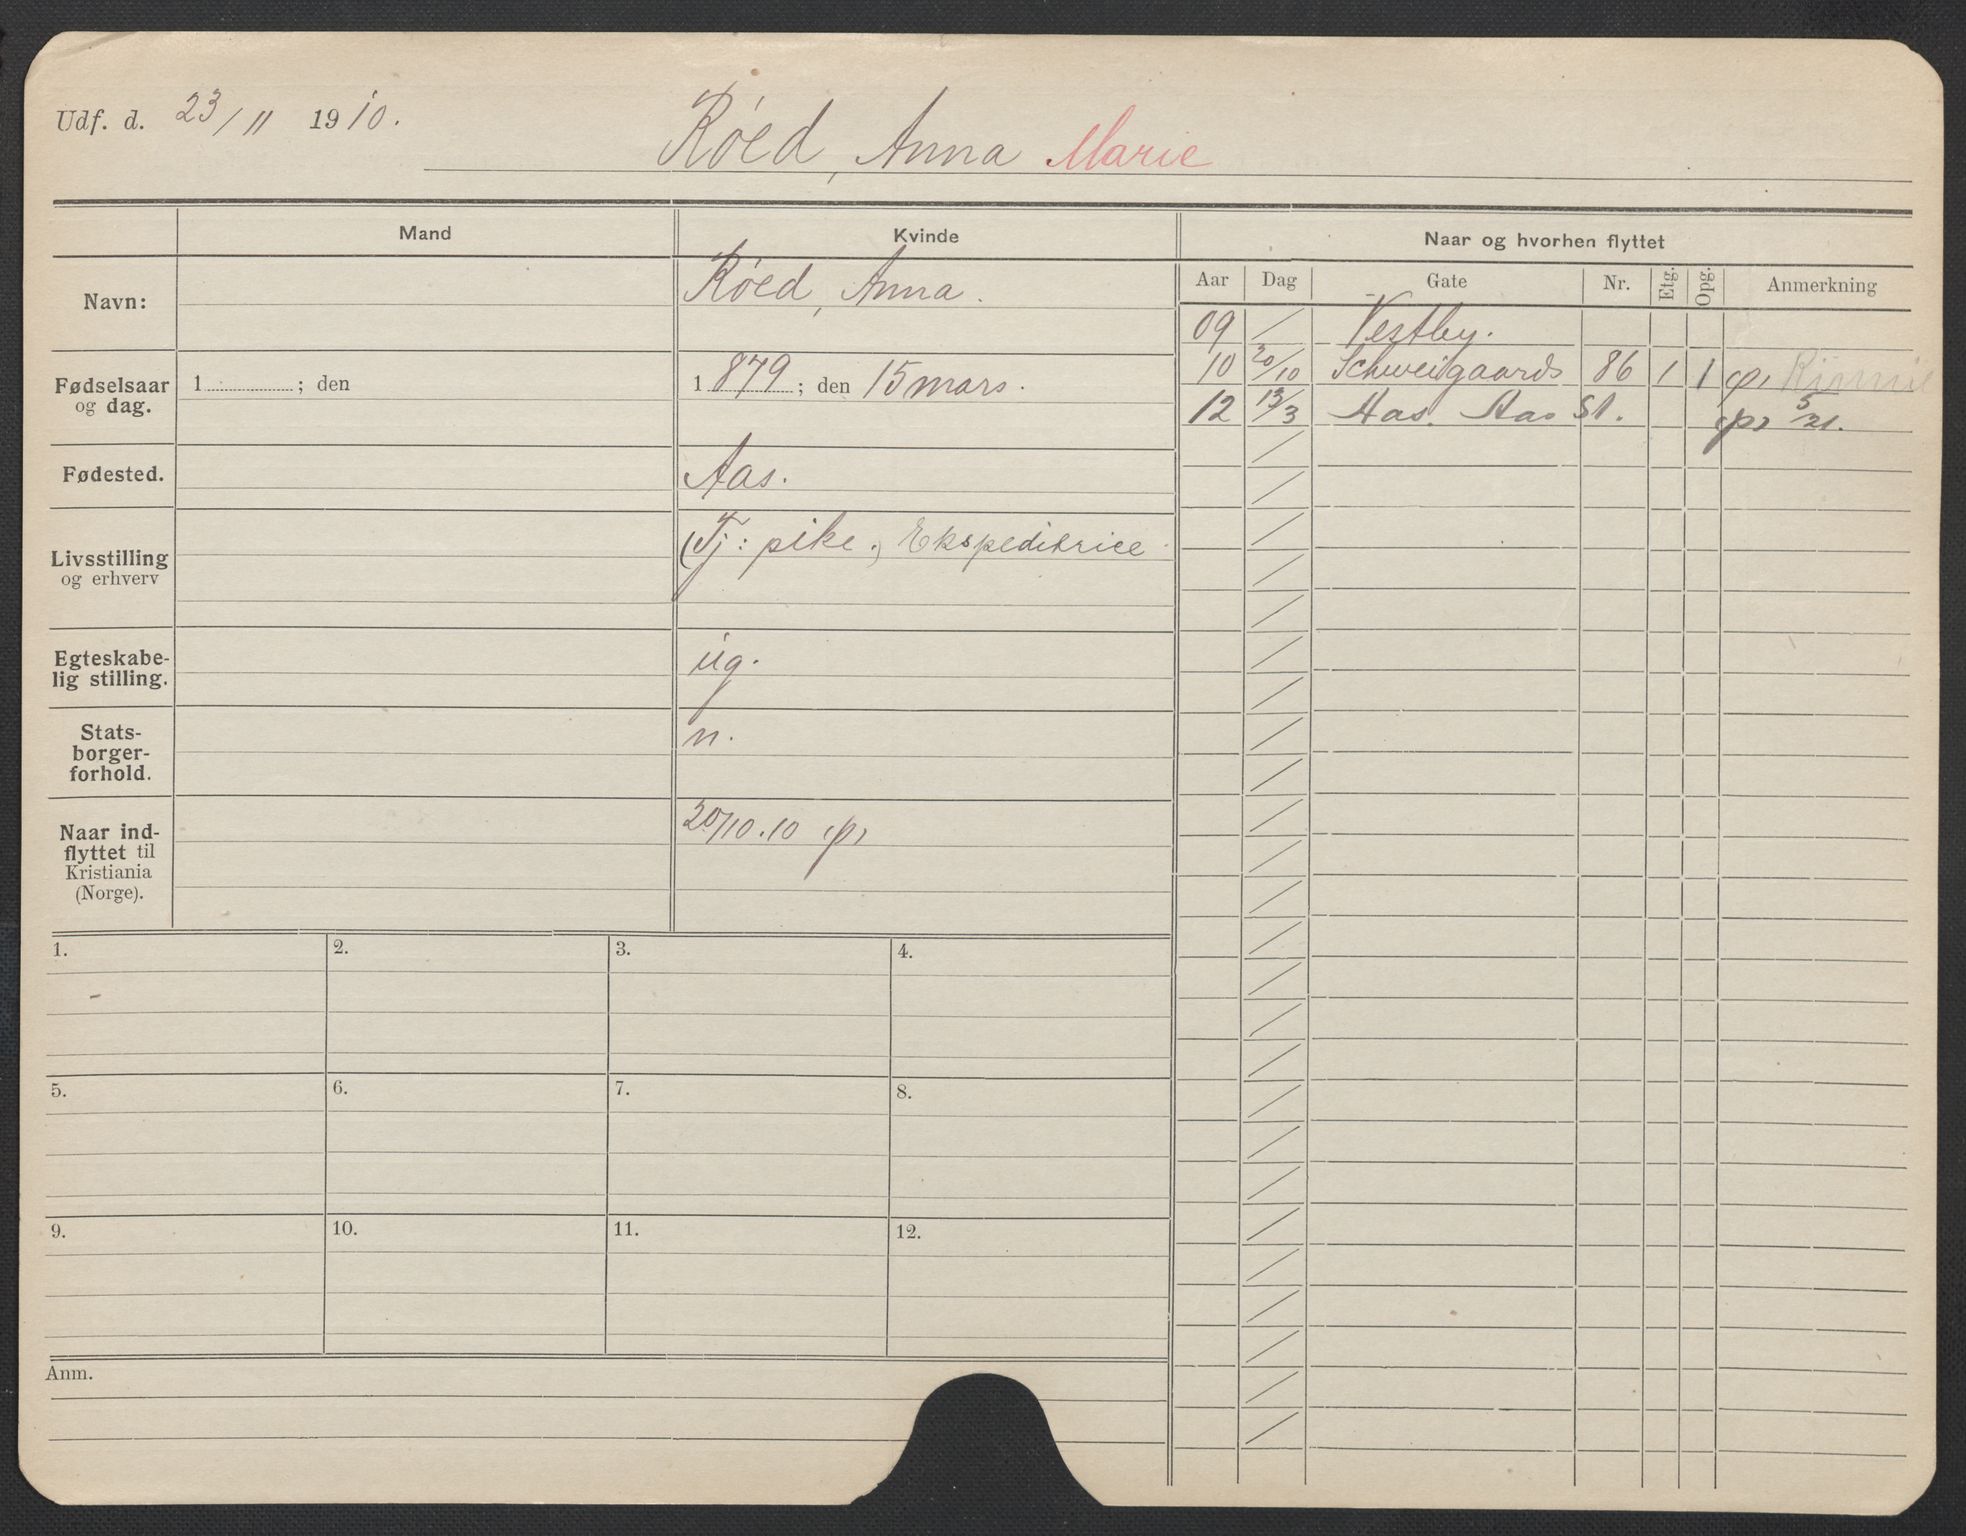 Udf. d. 23/11 1910.
Røed, Anna Marie
Mand
Kvinde
Navn:
Røed, Anna.
Fødselsaar og dag.
1 ; den
1879 ; den 15 mars.
Fødested.
Aas.
Livsstilling og erhverv
(Tj: pike.) Ekspeditrice
Egteskabe-
lig stilling.
ug.
Stats-
borger-
forhold.
n.
Naar ind-
flyttet til
Kristiania
(Norge).
20/10.10
1.
2.
3.
4.
5.
6.
7.
8.
9.
10.
11.
12.
Anm.
Naar og hvorhen flyttet
Aar Dag Gate Nr. Etg. Opg. Anmerkning
09 / Vestby.
10 20/10 Schweigaards 86 1 1
12 13/3 Aas. Aas St. 5/21.